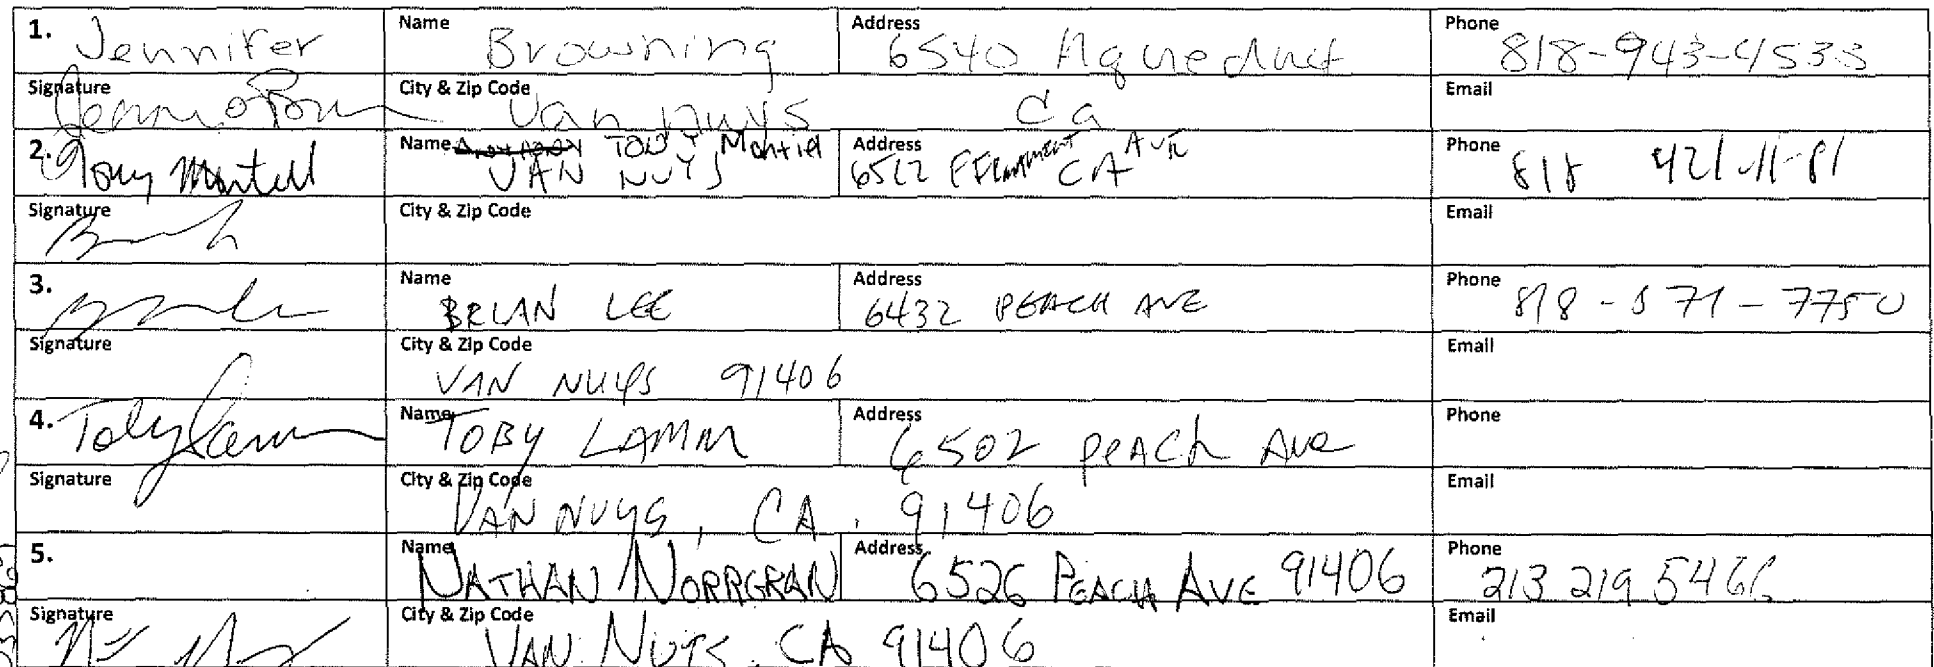 1. Jennifer Name Browning Address 6540 Aqueduct Phone 818-943-4533
Signature City & Zip Code Van nuys Ca Email
2. Tony Name TONY Montiel Address 6522 AVE Phone 818 421-11-81
VAN NUYS CA
Signature City & Zip Code Email
3. Name BRIAN LEE Address 6432 PEACH AVE Phone 818-571-7750
Signature City & Zip Code Email
VAN NUYS 91406
4. Toby Name TOBY LAMM Address 6502 PEACh Ave Phone
Signature City & Zip Code Email
VAN NUYS, CA. 91406
5. Name NATHAN NORRGRAN Address 6526 PEACH AVE 91406 Phone 213 219 5466
Signature City & Zip Code VAN NUYS, CA 91406 Email